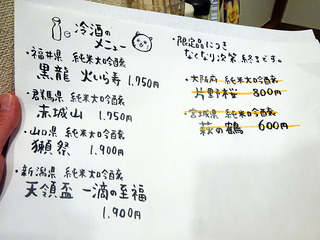 冷酒の
メニュー
・福井県 純米大吟醸
黒龍 火いら寿 1.750円
・群馬県 純米大吟醸
赤城山 1.750円
・山口県 純米大吟醸
獺祭 1.900円
・新潟県 純米大吟醸
天領盃 一滴の至福
1.900円
・限定品につき
なくなり次第、終了です。
・大阪府 純米大吟醸
片野桜 800円
・宮城県 純米吟醸
萩の鶴 600円